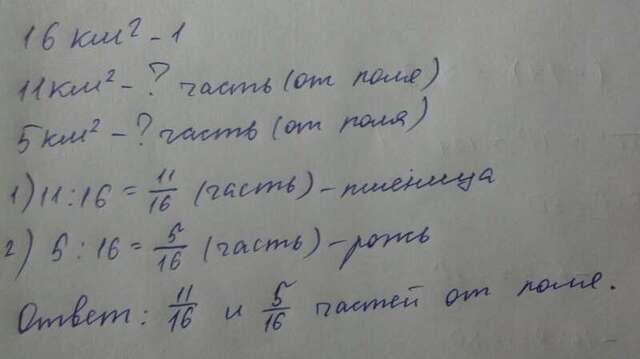 16 км² - 1
11 км² - ? часть (от поля)
5 км² - ? часть (от поля)
1) 11 : 16 = 11/16 (часть) - пшеница
2) 5 : 16 = 5/16 (часть) - рожь
Ответ: 11/16 и 5/16 частей от поля.